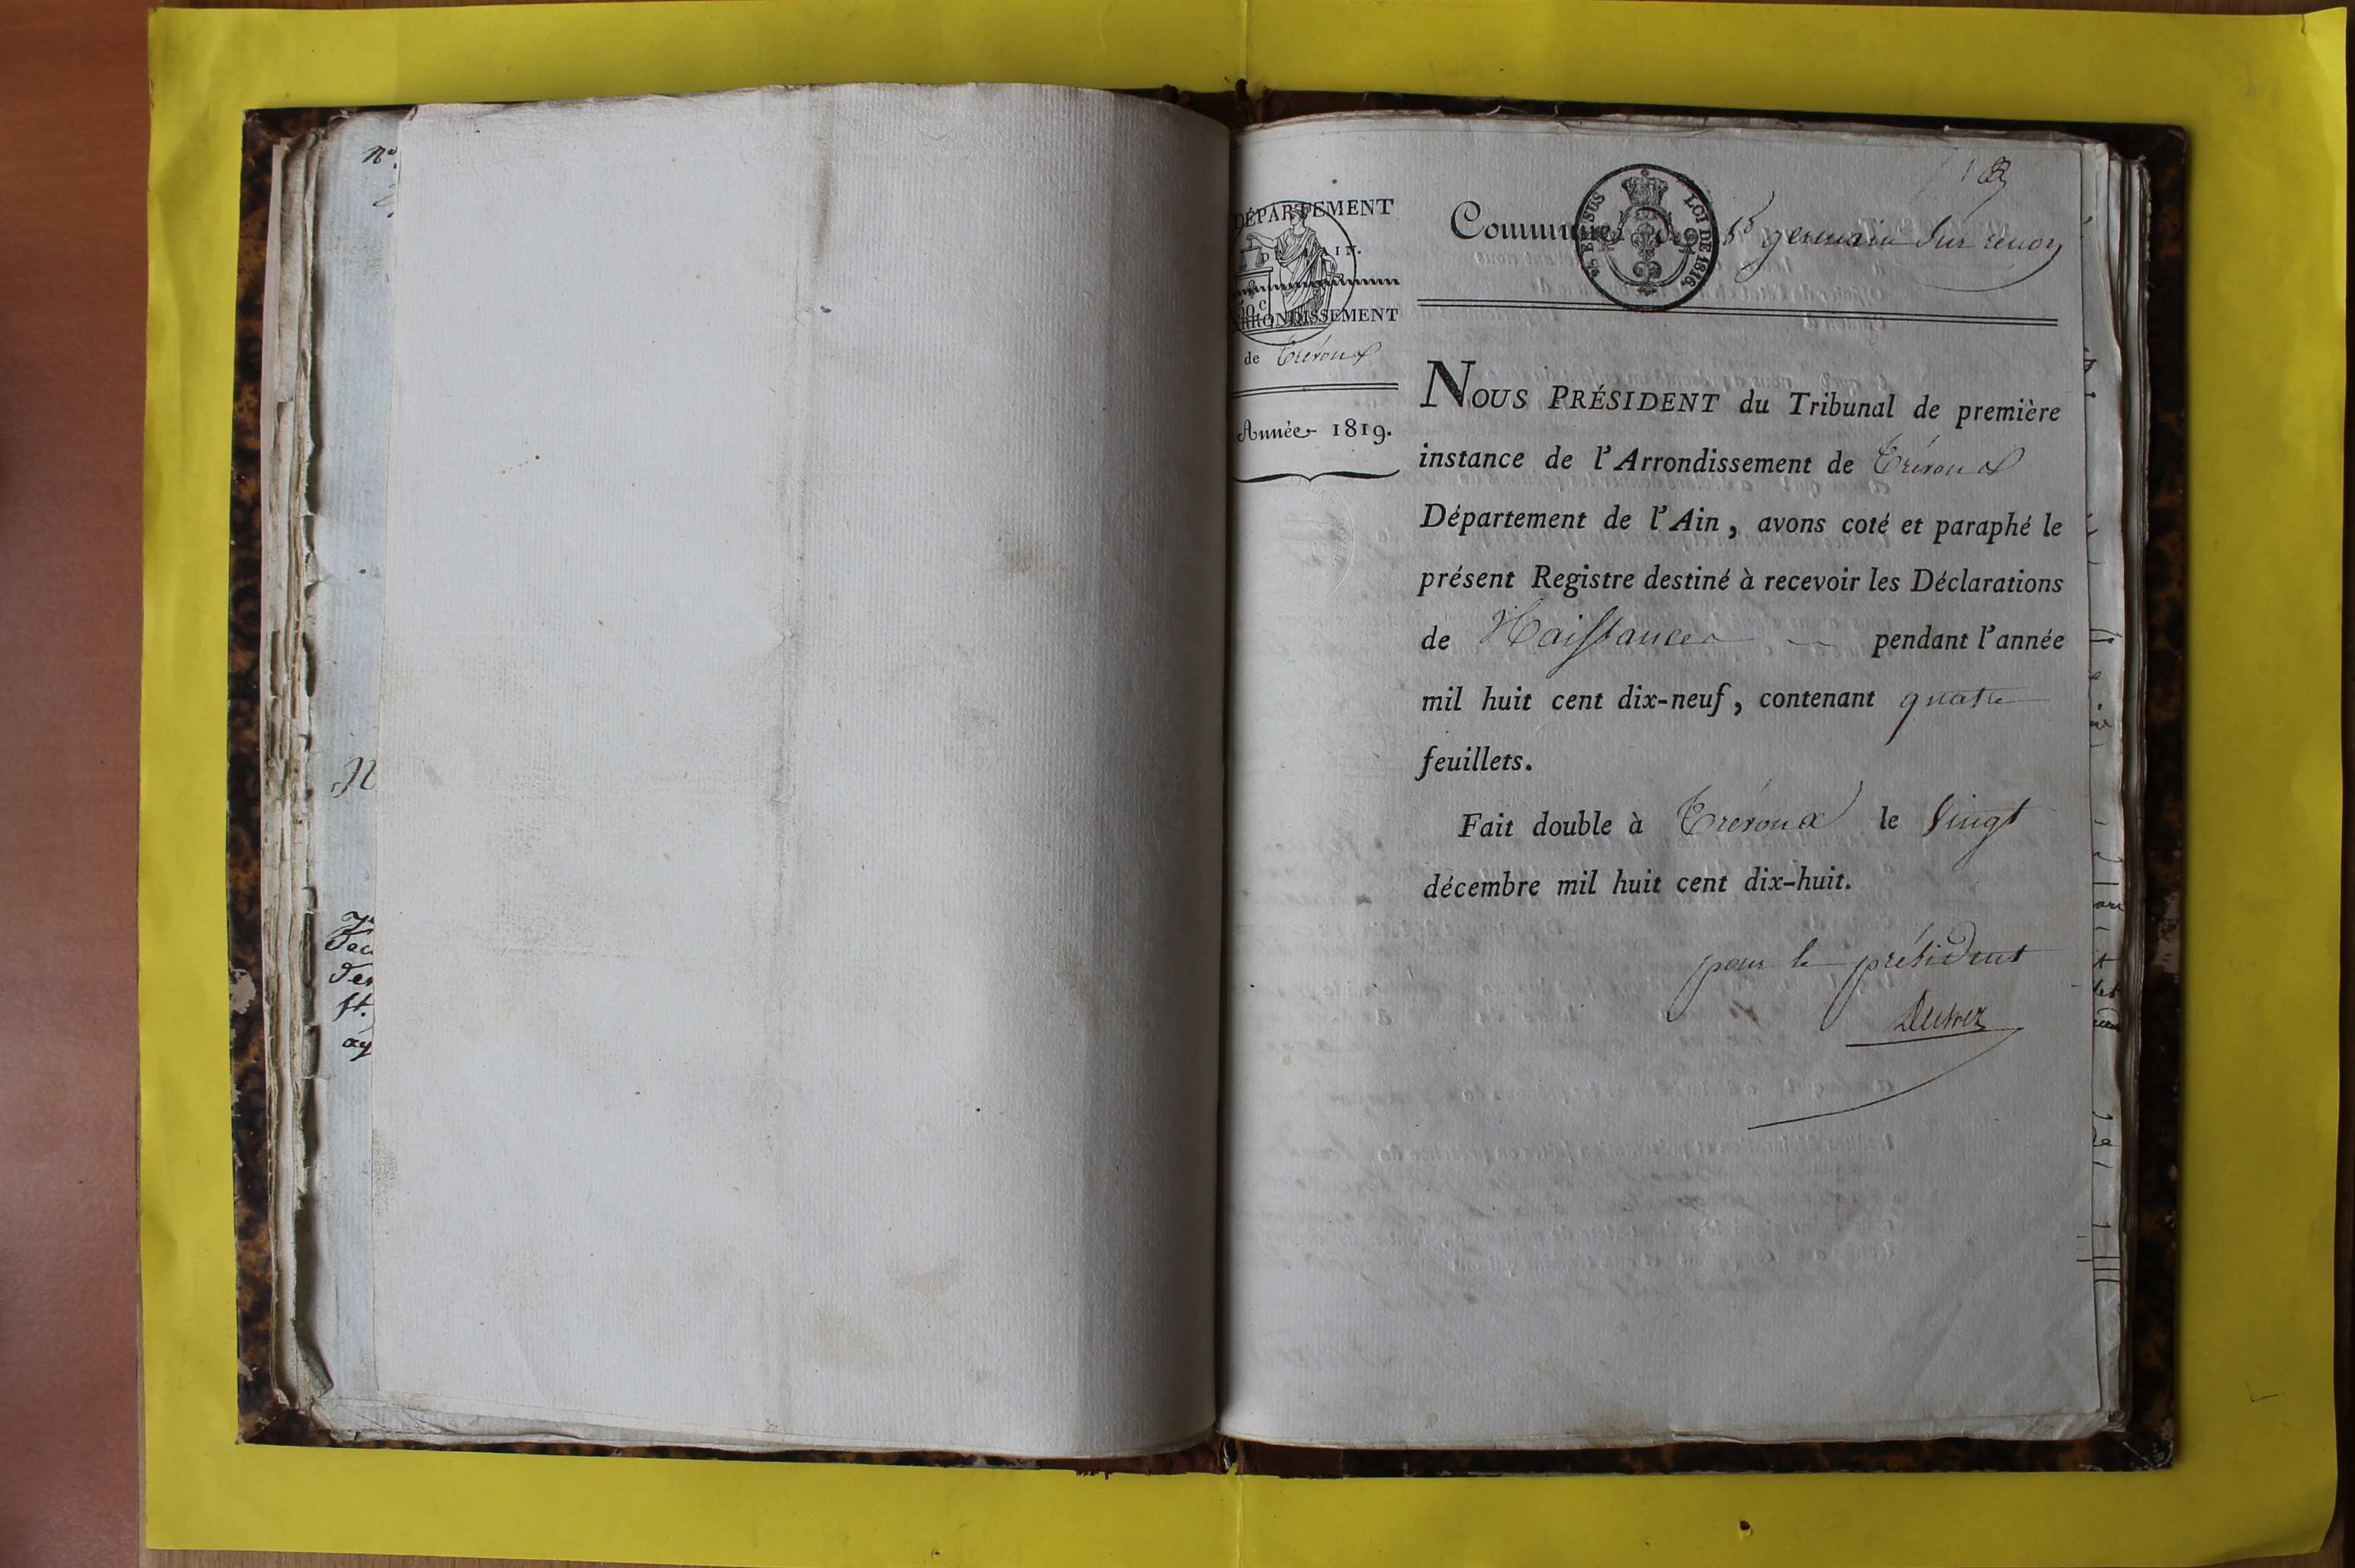 Nº
N
Dec
der
st.
ay
DÉPARTEMENT
ARRONDISSEMENT
de Trévoux
Année 1819.
50 c
EN SUS
LOI DE 1816.
Commune de St germain sur renon
NOUS PRÉSIDENT du Tribunal de première
instance de l'Arrondissement de Trévoux
Département de l'Ain, avons coté et paraphé le
présent Registre destiné à recevoir les Déclarations
de Naissances pendant l'année
mil huit cent dix-neuf, contenant quatre
feuillets.
Fait double à Trévoux le Vingt
décembre mil huit cent dix-huit.
pour le président